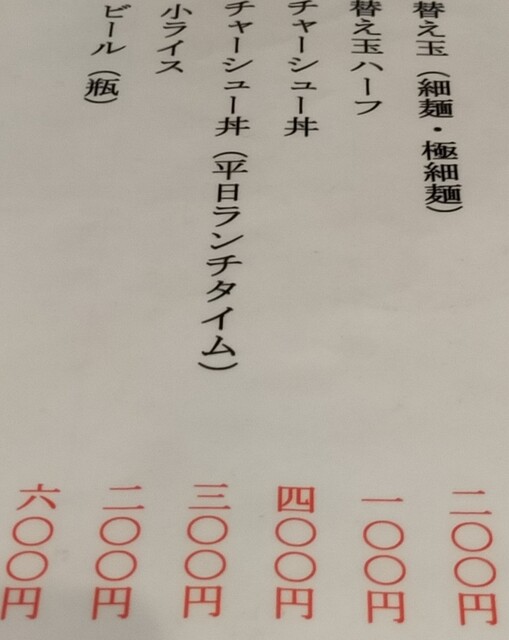 替え玉（細麺・極細麺） 二〇〇円
替え玉ハーフ 一〇〇円
チャーシュー丼 四〇〇円
チャーシュー丼（平日ランチタイム） 三〇〇円
小ライス 二〇〇円
ビール（瓶） 六〇〇円